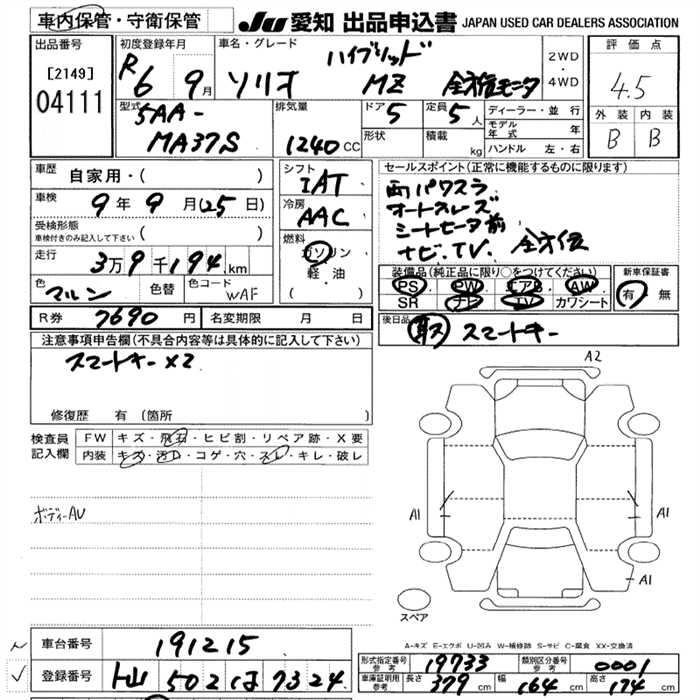 車内保管・守衛保管
JU 愛知 出品申込書 JAPAN USED CAR DEALERS ASSOCIATION
出品番号
[2149]
04111
初度登録年月
R6 9月
車名・グレード
ソリオ ハイブリッド MZ 全方位モニタ
2WD・4WD
評価点
4.5
外装 内装
B B
型式
5AA-
MA37S
排気量
1240 CC
ドア 5
定員 5人
形状
積載 kg
ディーラー・並行
モデル年式 年
ハンドル 左・右
車歴 自家用・( )
車検 9年9月(25日)
受検形態
車検付きのみ記入して下さい ( )
走行 3万9千194km
色 マルン
色替
色コード WAF
シフト
IAT
冷房
AAC
燃料
ガソリン
軽・油
( )
セールスポイント(正常に機能するものに限ります)
両パワスラ
オートスレーズ
シートヒータ前
ナビ.TV. 全方位
装備品(純正品に限り○をつけてください)
PS PW エアB AW
SR ナビ TV カワシート
新車保証書
有・無
R券 7690円
名変期限 月 日
後日品
取 スマートキー
注意事項申告欄(不具合内容等は具体的に記入して下さい)
スマートキー×2
修復歴 有(箇所
検査員記入欄
FW キズ・飛石・ヒビ割・リペア跡・X要
内装 キズ・汚れ・コゲ・穴・スレ・キレ・破レ
ボディーAU
A2
A1
A1
A1
スペア
A-キズ E-エクボ U-凹み W-補修跡 S-サビ C-腐食 XX-交換済
車台番号 191215
登録番号 502 は 7324
形式指定番号
参考
19733
類別区分番号
参考
0001
車庫証明用
参考
長さ 379cm
幅 164cm
高さ 174cm